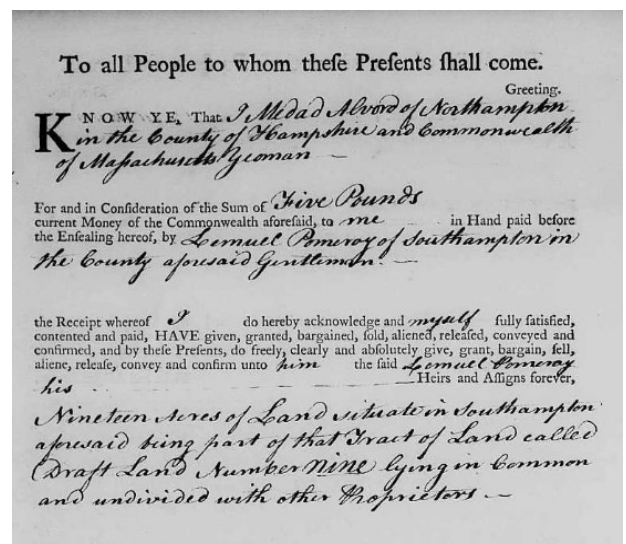 To all People to whom theſe Preſents ſhall come.
Greeting.
KNOW YE, That I Medad Alvord of Northampton
in the County of Hampshire and Commonwealth
of Massachusetts Yeoman —
For and in Conſideration of the Sum of Five Pounds
current Money of the Commonwealth aforeſaid, to me in Hand paid before
the Enſealing hereof, by Lemuel Pomeroy of Southampton in
the County aforesaid Gentleman. —
the Receipt whereof I do hereby acknowledge and myself fully ſatisfied,
contented and paid, HAVE given, granted, bargained, ſold, aliened, releaſed, conveyed and
confirmed, and by theſe Preſents, do freely, clearly and abſolutely give, grant, bargain, ſell,
aliene, releaſe, convey and confirm unto him the ſaid Lemuel Pomeroy
his Heirs and Aſſigns forever,
Nineteen Acres of Land situate in Southampton
aforesaid being part of that Tract of Land called
Draft Land Number nine lying in Common
and undivided with other Proprietors —